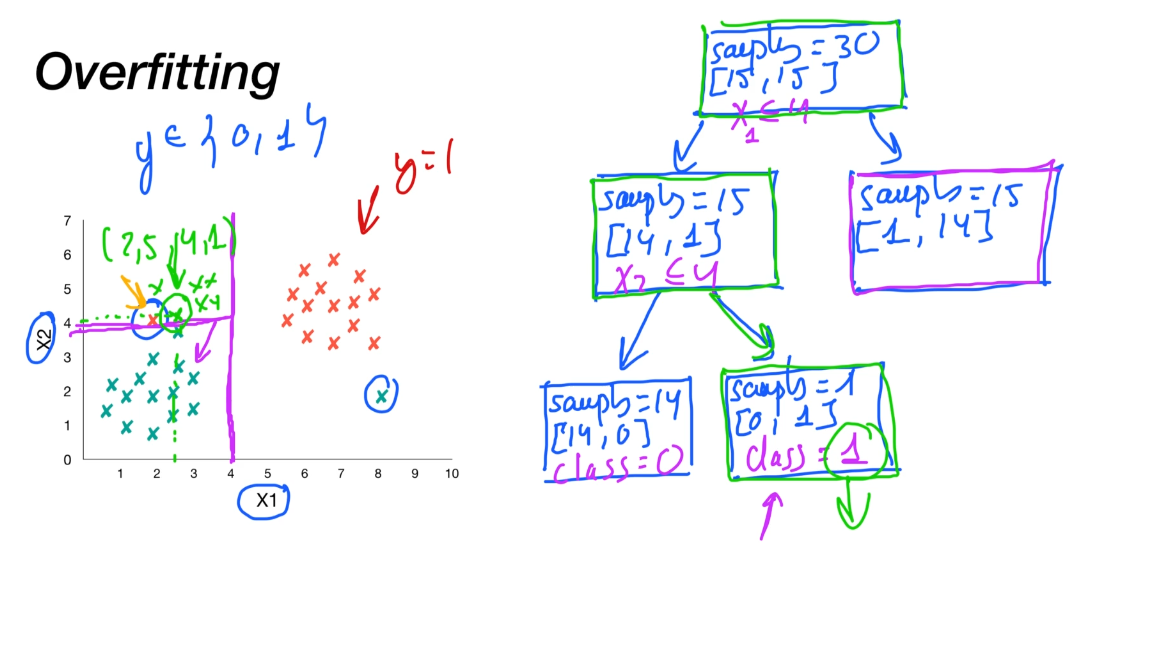 Overfitting
y ∈ {0, 1}
y=1
(2,5 4,1)
7
6
5
4
3
2
1
0
X2
1 2 3 4 5 6 7 8 9 10
X1
samples = 30
[15, 15]
X1 ≤ 4
samples = 15
[14, 1]
X2 ≤ 4
samples = 15
[1, 14]
samples = 14
[14, 0]
class = 0
samples = 1
[0, 1]
class = 1